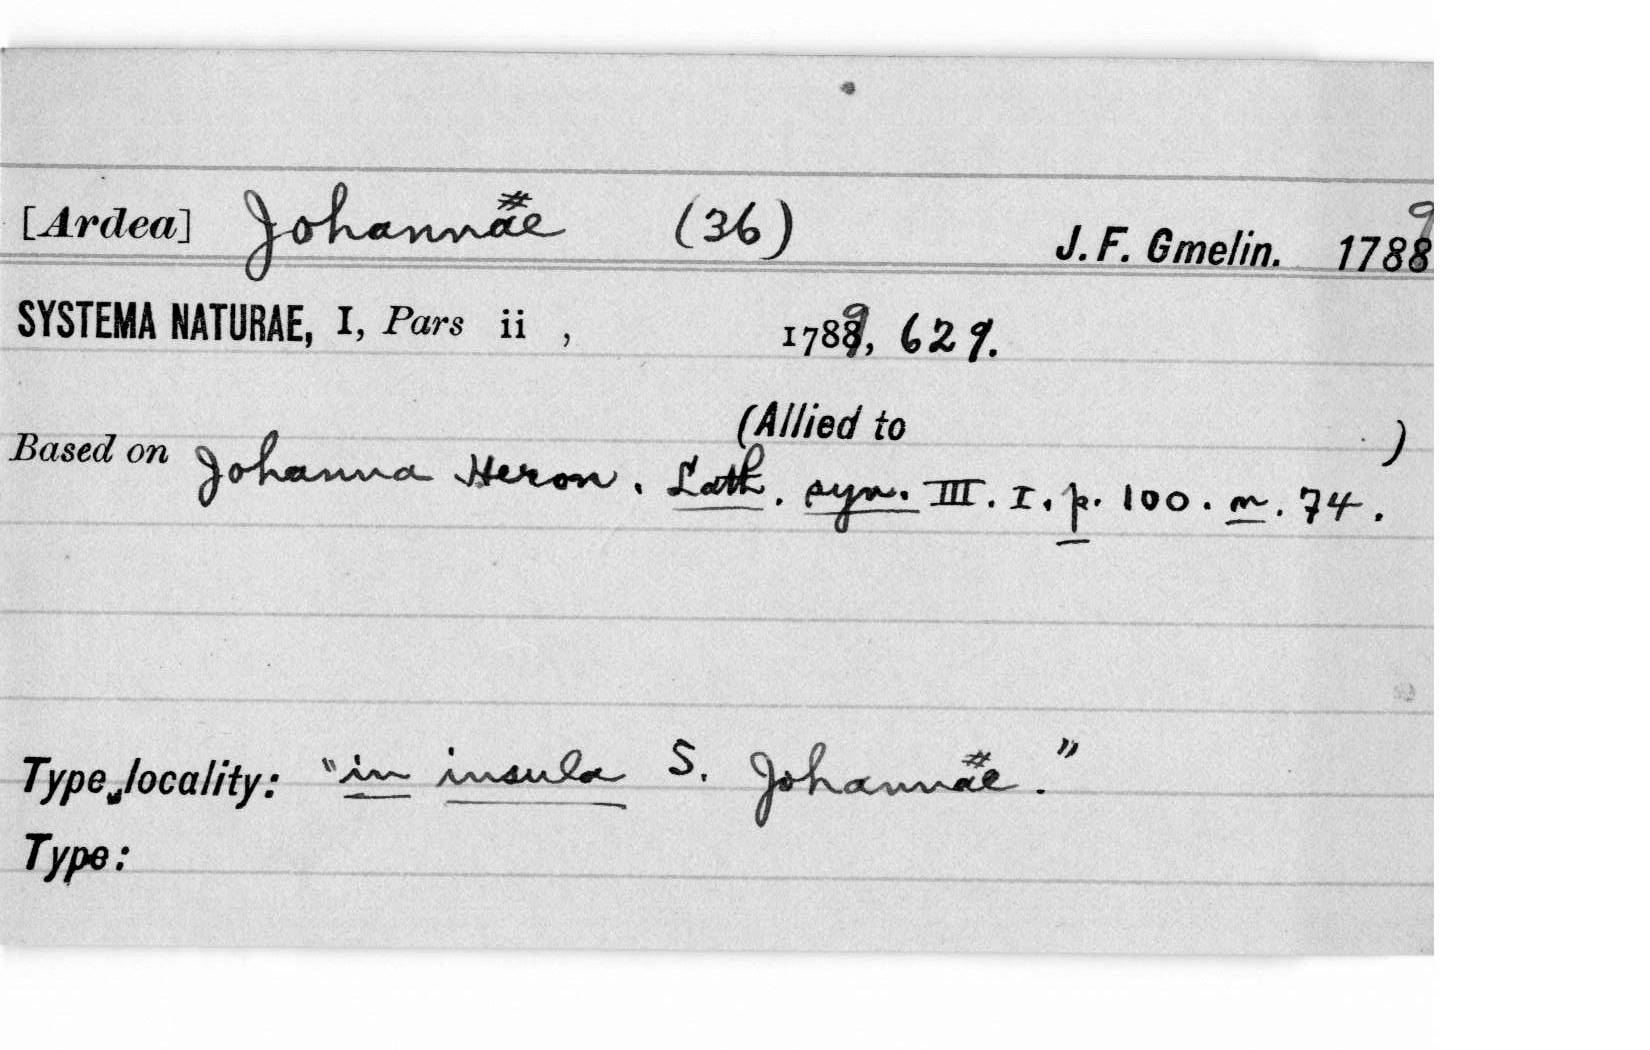 [Ardea] Johannae # (36) J. F. Gmelin. 1788 9
SYSTEMA NATURAE, I, Pars ii , 1789, 629.
(Allied to )
Based on Johanna Heron. Lath. syn. III. I. p. 100. n. 74.
Type locality: "in insula S. Johannae #."
Type: